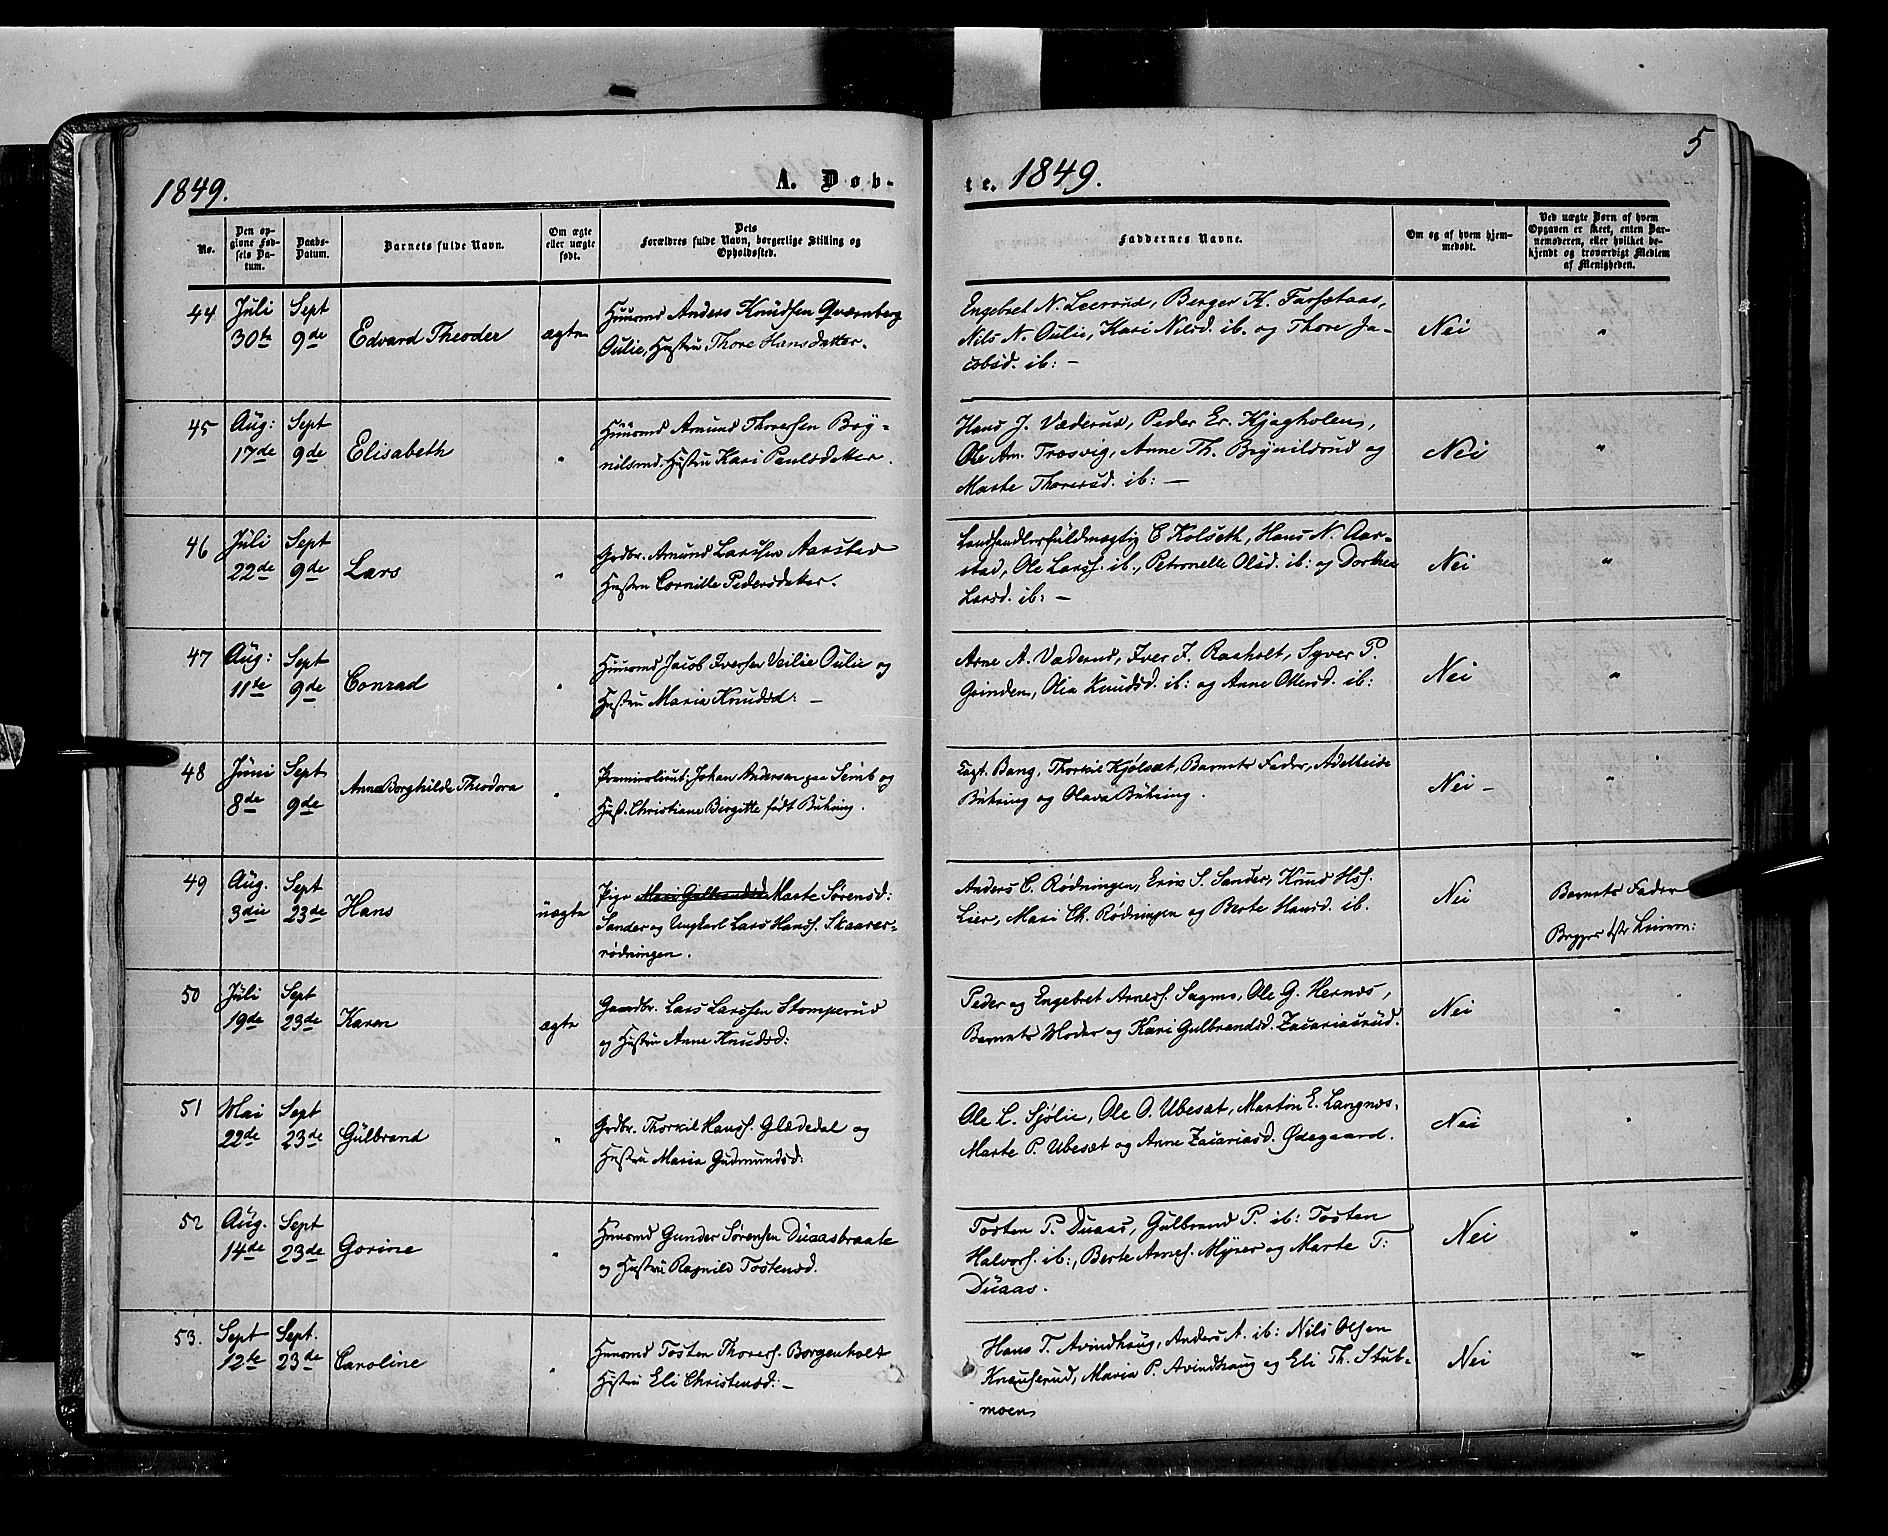 5
1849.
A. Døb-
te. 1849.
No.
Den op-
givne Fød-
sels Da-
tum.
Daabs-
Datum.
Barnets fulde Navn.
Om ægte
eller uægte
født.
Dets
Forældres fulde Navn, borgerlige Stilling og
Opholdssted.
Faddernes Navne.
Om og af hvem hjem-
medøbt.
Ved uægte Børn af hvem
Opgaven er skeet, enten Bar-
nemoderen, eller hvilket be-
kjendt og troværdigt Medlem
af Menigheden.
44
Juli
30te
Sept
9de
Edvard Theoder
ægte
Huusmd Anders Knudsen Qværnberg
Oulie, Hustru Thore Hansdatter.
Engebret N. Leerud, Berger K.
Nils N. Oulie, Kari Nilsd. ib. og Thore Ja-
cobsd. ib: —
Nei
"
45
Aug:
17de
Sept
9de
Elisabeth
"
Huusmd Amund Thoresen Bry-
nilsrud. Hustru Kari Paulsdatter.
Hans J. Væderud, Peder Er. Kjagholen,
Ole Am. Trosvig, Anne Th. Brynildsrud og
Marte Thoresd. ib: —
Nei
"
46
Juli
22de
Sept
9de
Lars
"
Grdbr. Amund Larssen Aarstad
Hustru Cornille Pedersdatter.
Landhandlerfuldmægtig C Kolseth, Hans N. Aar-
stad, Ole Larss. ib., Petronelle Olsd. ib: og Dorthea
Larsd. ib: —
Nei
"
47
Aug:
11te
Sept
9de
Conrad
"
Huusmd Jacob Iversen Veilie Oulie og
Hustru Maria Knudsd: —
Arne A. Væderud, Iver J. Raaholt, Syver P.
Grinden, Olea Knudsd. ib: og Anne Olersd. ib:
Nei
"
48
Juni
8de
Sept
9de
Anna Borghilde Theodora
"
Premierlieut: Johan Andersen paa Semb og
Hust. Christiane Birgitte født Buhring.
Capt. Bang, Thorkil Kjølsæt, Barnets Fader, Adelheide
Buhring og Olava Buhring.
Nei —
"
49
Aug.
3die
Sept
23de
Hans
uægte
Pige Mari Gulbrandsd Marte Sørensd:
Sander og Ungkarl Lars Hanss. Skaarer-
rødningen.
Anders C. Rødningen, Eriv S. Sander, Knud Hss.
Lier, Mari Ch. Rødningen og Berte Hansd. ib.
Nei
Barnets Fader
Begges 1ste Leierm:
50
Juli
19de
Sept
23de
Karen
ægte
Gaardbr. Lars Larssen Stomperud
og Hustru Anne Knudsd:
Peder og Engebret Arness. Sagmo, Ole G. Hernæs,
Barnets Moder og Kari Gulbrandsd. Zacariasrud.
Nei
"
51
Mai
22de
Sept
23de
Gulbrand
"
Grdbr. Thorkil Hanss. Glædedal og
Hustru Maria Gudmundsd:
Ole L. Sjølie, Ole O. Ubesæt, Martin E. Langnæs,
Marte P. Ubesæt og Anne Zacariasd. Ødegaard.
Nei
"
52
Aug.
14de
Sept
23de
Gorine
"
Huusmd Gunder Sørensen Duaasbraate
og Hustru Ragnild Tostensd.
Tosten P. Duaas, Gulbrand P. ib: Tosten
Halvors. ib:, Berte Arnes. Myrer og Marte T:
Duaas.
Nei
"
53.
Sept
12te
Sept.
23de
Caroline
"
Huusmd Tosten Thoress. Borgenholt
Hustru Eli Christensd: —
Hans T. Avindhaug, Anders A. ib: Nils Olsen
Knauserud, Maria P. Avindhaug og Eli Th. Stub-
moen
Nei
"